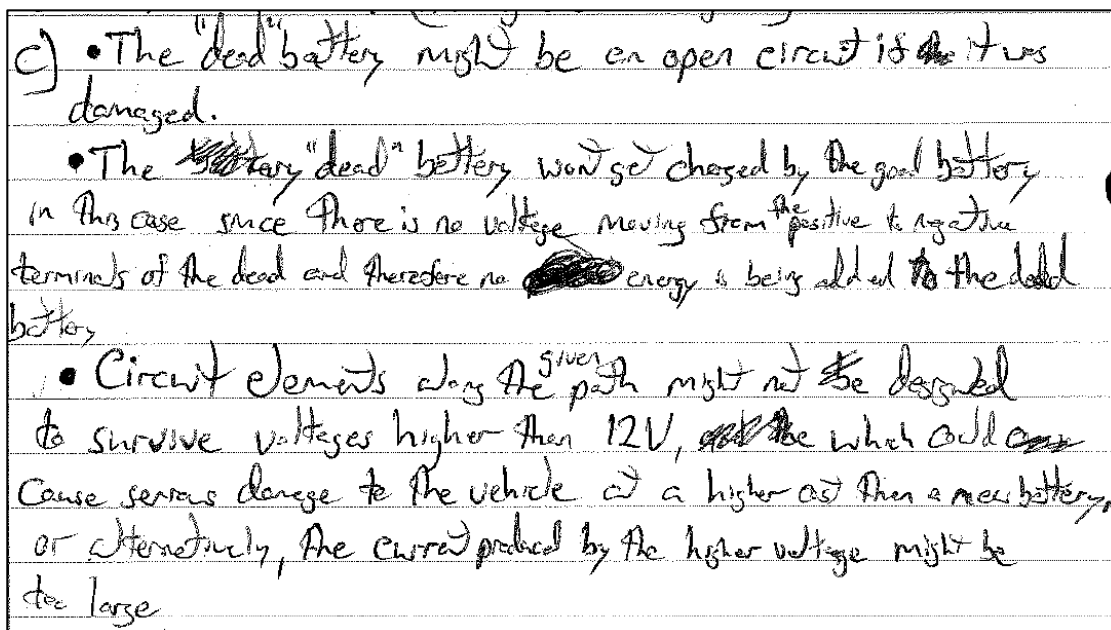 c) • The "dead" battery might be an open circuit if it was
damaged.
• The "dead" battery won't get charged by the good battery
in this case since there is no voltage moving from the positive to negative
terminals of the dead and therefore no energy is being added to the dead
battery
• Circuit elements along the given path might not be designed
to survive voltages higher than 12V, which could
cause serious damage to the vehicle at a higher cost than a new battery,
or alternatively, the current produced by the higher voltage might be
too large